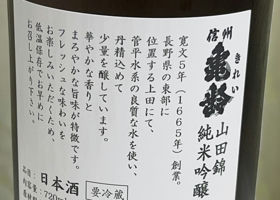 信州
亀齢
きれい
山田錦
純米吟醸
寛文5年(1665年)創業。
長野県の東部に
位置する上田にて、
菅平水系の良質な水を使い、
丹精込めて
少量を醸しています。
華やかな香りと
まろやかな旨味が特徴です。
フレッシュな味わいを
お楽しみいただくため、
低温保存でお早めに
お召し上がり下さい。
日本酒
要冷蔵